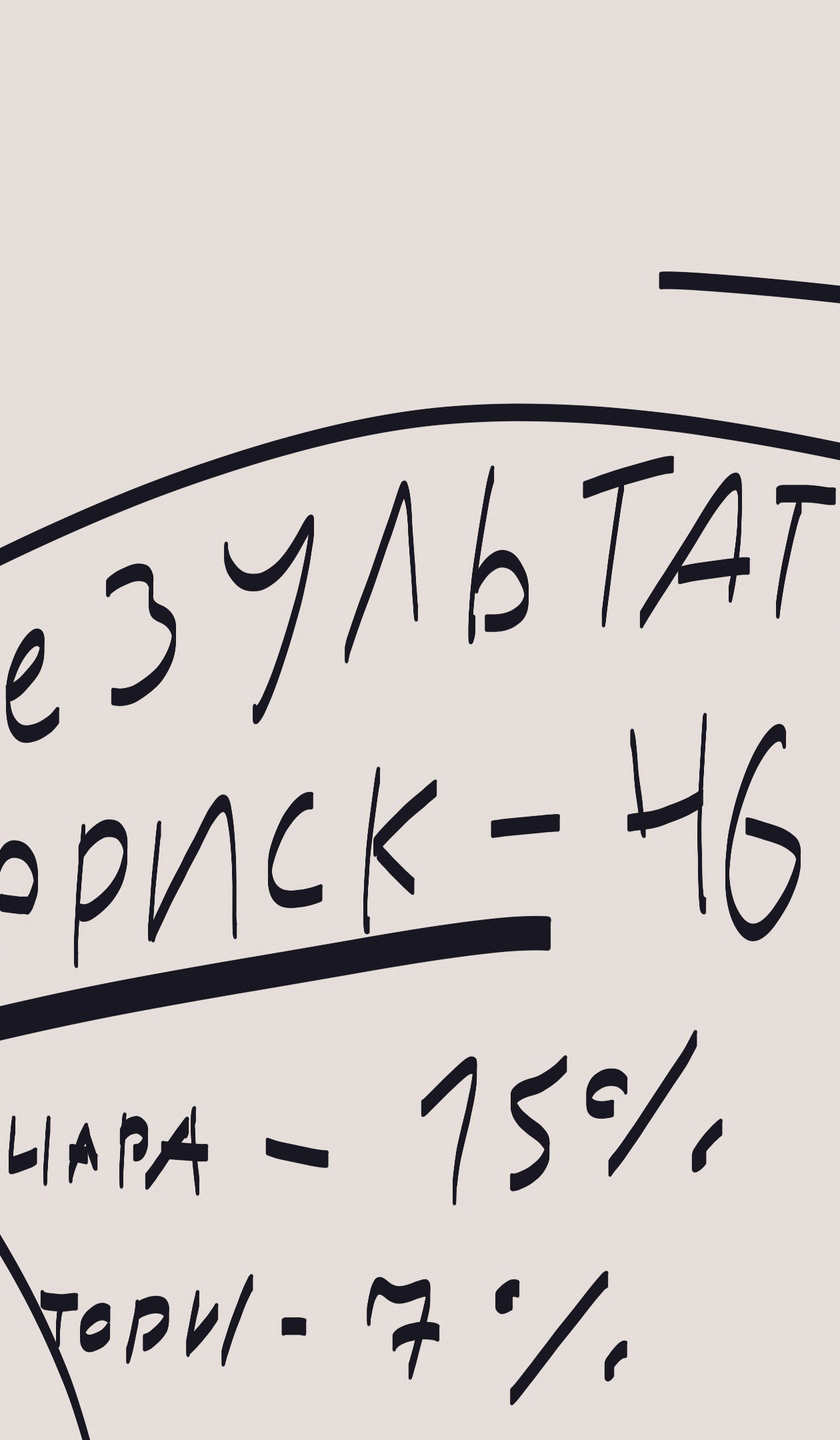 еЗУЛЬТАТ
ОРИСК - 46
- 15%
ТОРИ - 7%